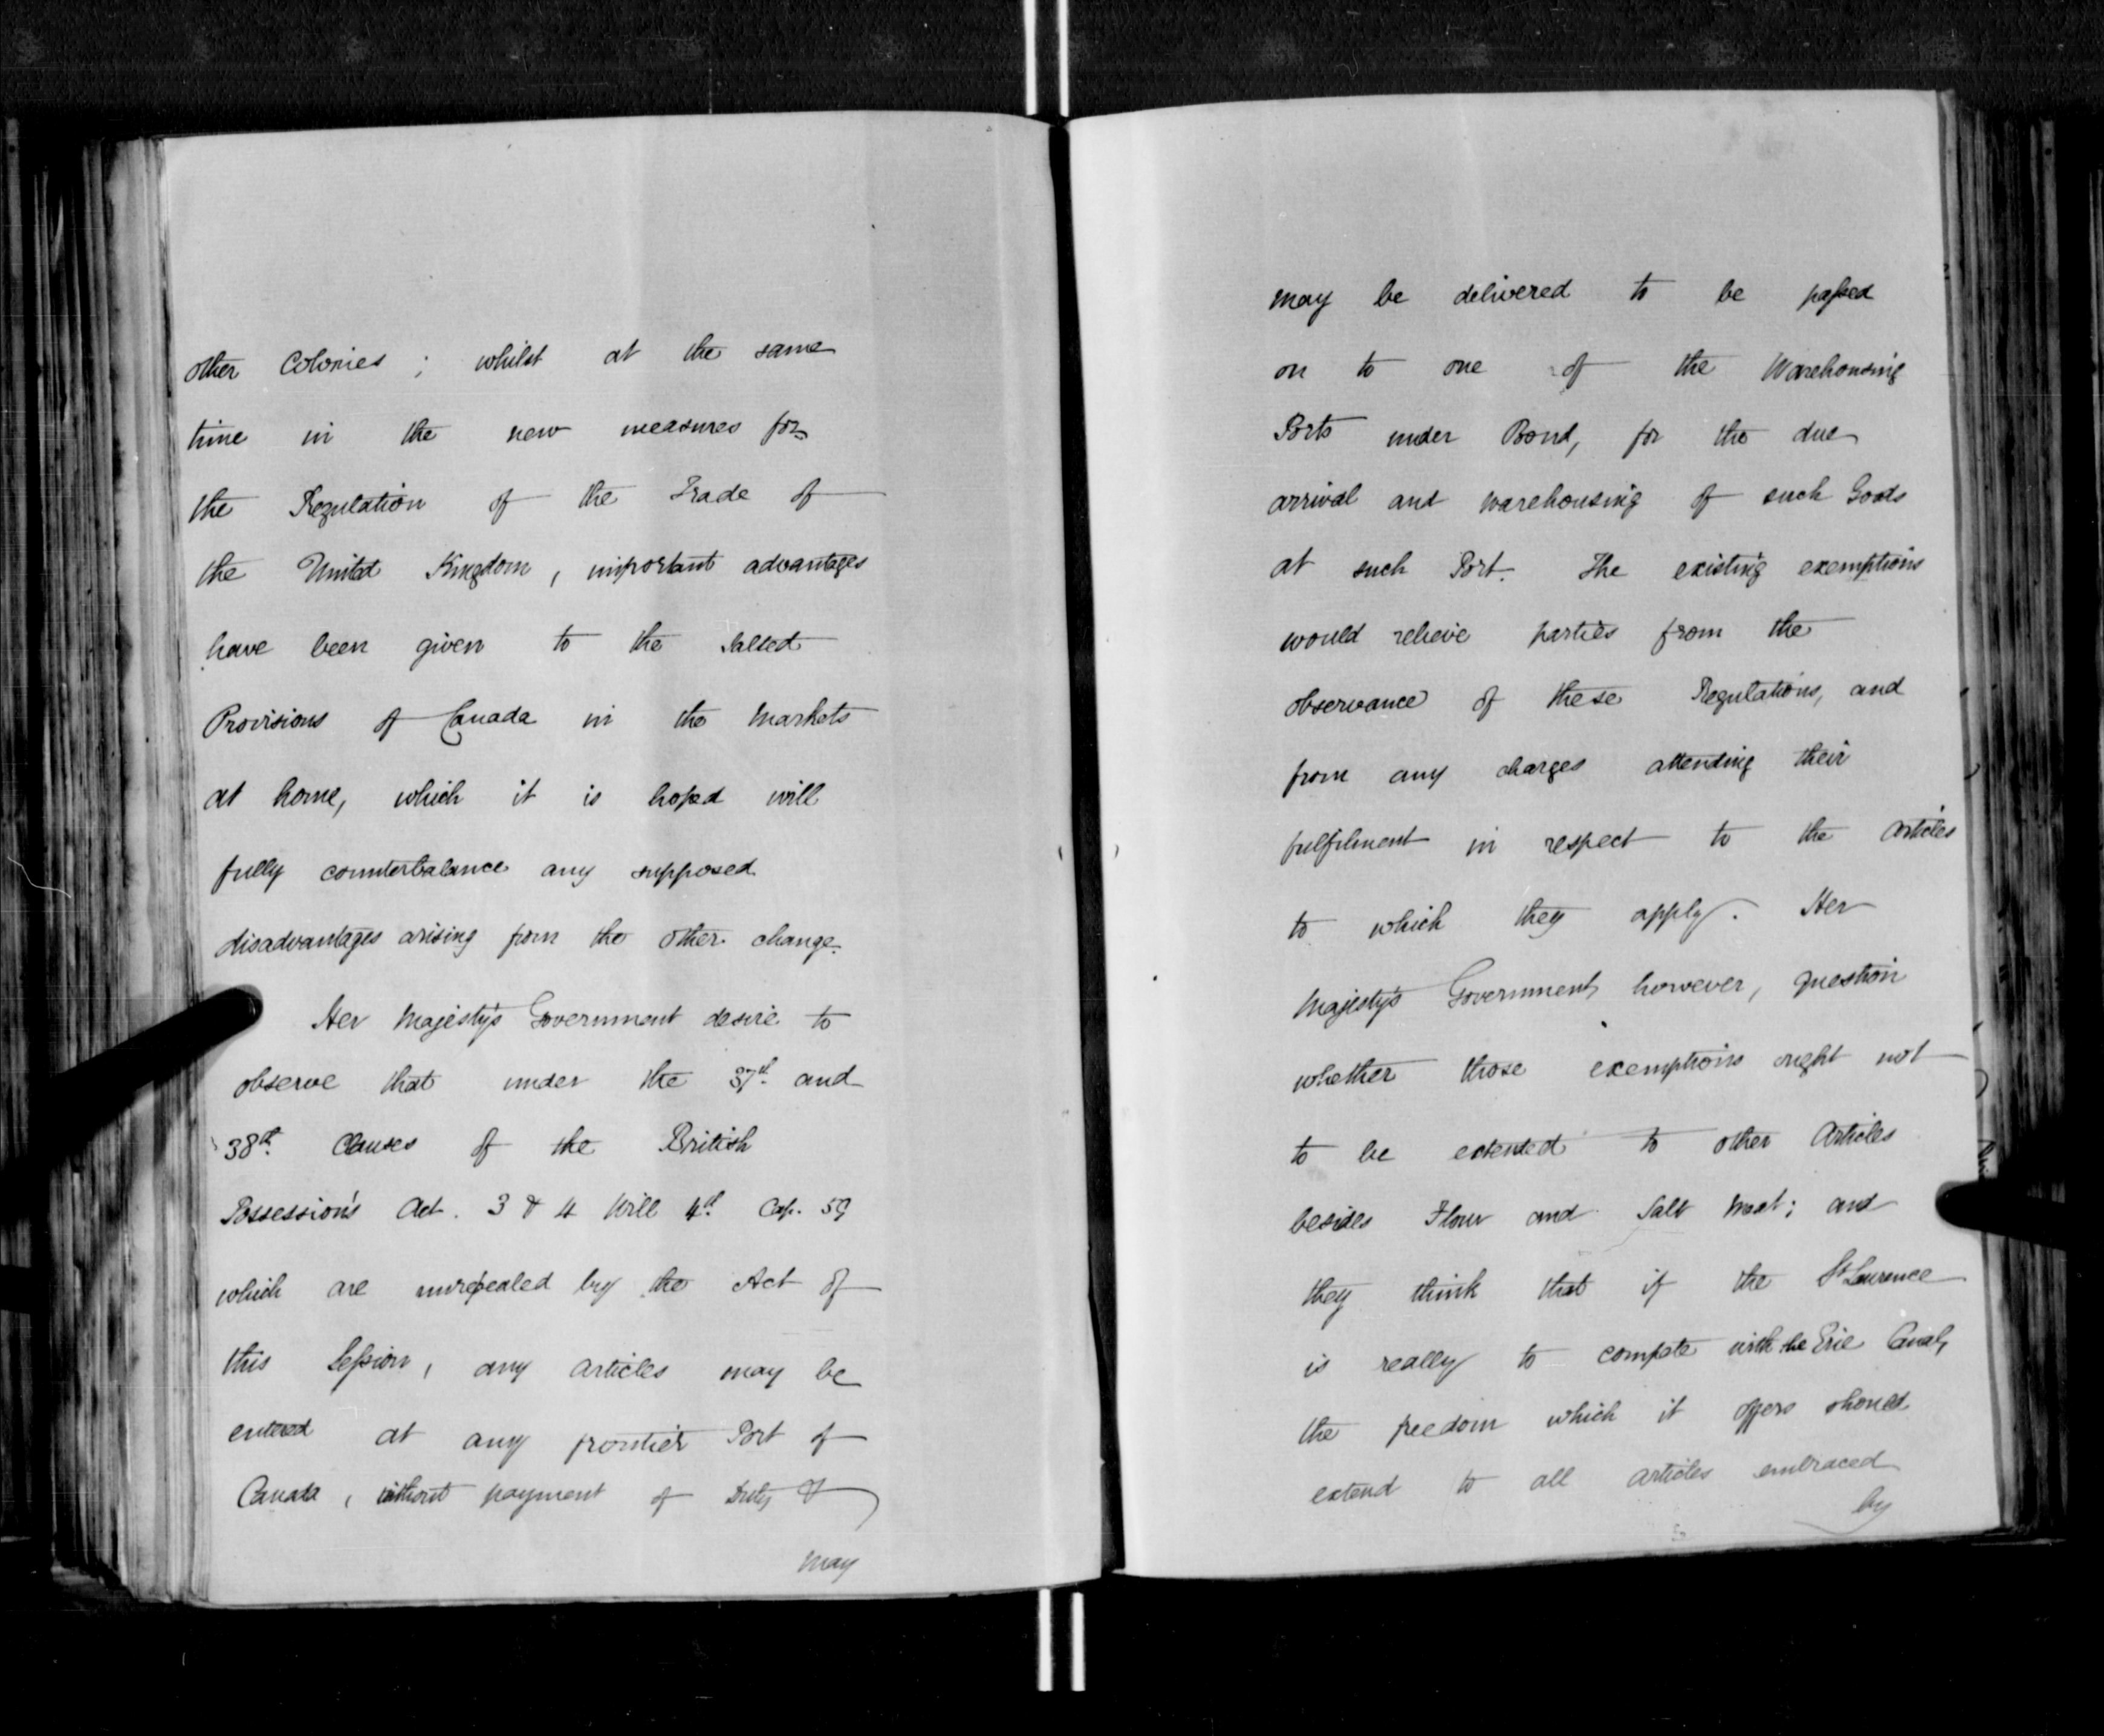 other Colonies; whilst at the same
time in the new measures for
the Regulation of the Trade of
the United Kingdom, important advantages
have been given to the Salted
Provisions of Canada in the Markets
at home, which it is hoped will
fully counterbalance any supposed
disadvantages arising from the other change.
Her Majesty's Government desire to
observe that under the 37th and
38th Clauses of the British
Possession's Act. 3 & 4 Will 4th Cap. 59
which are unrepealed by the Act of
this Session, any articles may be
entered at any frontier Port of
Canada, without payment of Duty &
may
may be delivered to be passed
on to one of the Warehousing
Ports under Bond, for the due
arrival and warehousing of such Goods
at such Port. The existing exemptions
would relieve parties from the
observance of these Regulations, and
from any charges attending their
fulfilment in respect to the articles
to which they apply. Her
Majesty's Government, however, question
whether those exemptions ought not
to be extended to other Articles
besides Flour and Salt Meat; and
they think that if the St Lawrence
is really to compete with the Erie Canal,
the freedom which it offers should
extend to all articles embraced
by